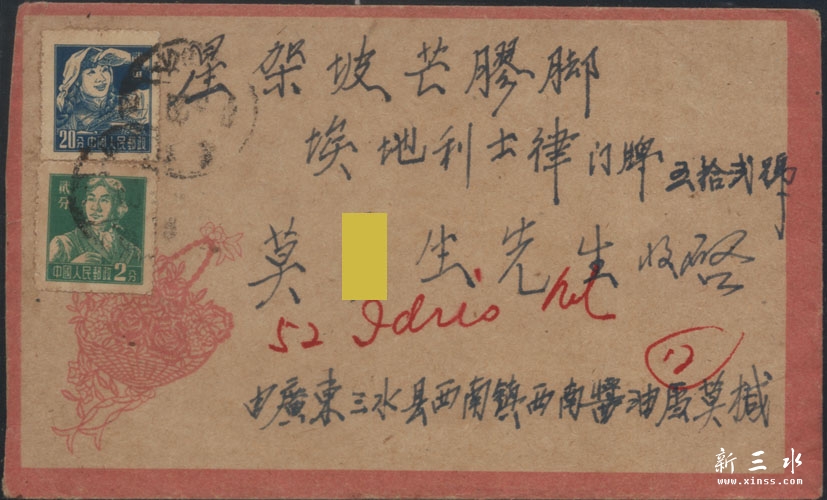 星架坡芒膠脚
埃地利士律门牌五拾弍號
莫 生先生收啓
52 Idrio Rd
12
由廣東三水县西南鎮西南醬油厝莫械
20分 中國人民郵政
貳分
中國人民郵政 2分
新三水
www.xinss.com